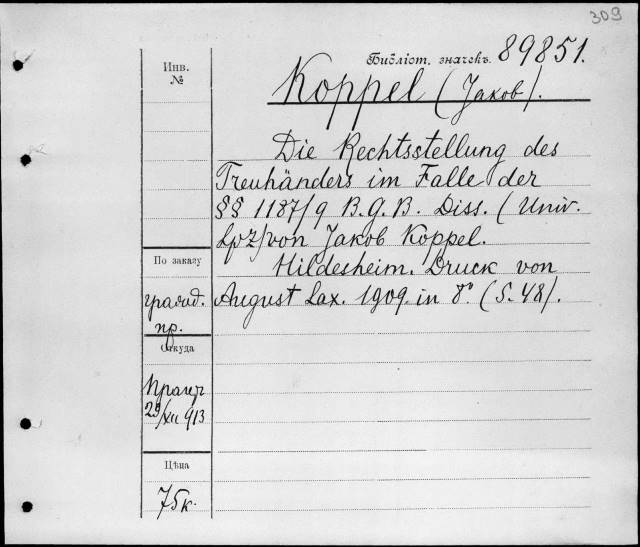 309
Библіот. значекъ. 89851.
Инв.
№
Koppel (Jakob).
Die Rechtsstellung des
Treuhänders im Falle der
§§ 1187/9 B.G.B. Diss. (Univ.
Lpz) von Jakob Koppel.
По заказу
Hildesheim. Druck von
гражд.
August Lax. 1909. in 8º. (S. 48).
пр.
Откуда
Прагер
29/XII 913
Цѣна
75 к.